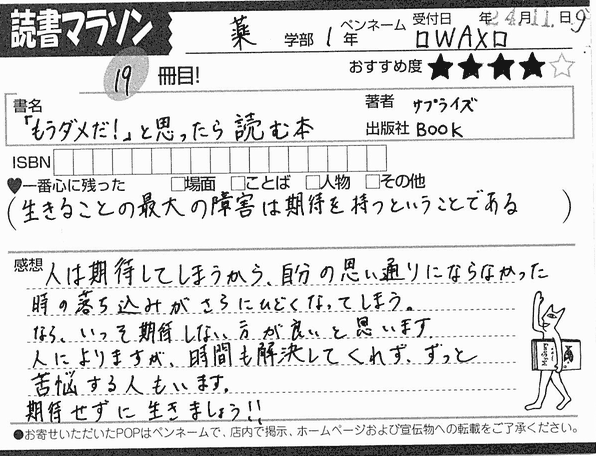 読書マラソン
薬 学部 1 年
ペンネーム □WAX□
受付日 年24月11.日9
19 冊目!
おすすめ度 ★★★★☆
書名 「もうダメだ!」と思ったら読む本
著者 サプライズ
出版社 BOOK
ISBN
♥一番心に残った □場面 □ことば □人物 □その他
(生きることの最大の障害は期待を持つということである)
感想 人は期待してしまうから、自分の思い通りにならなかった
時の落ち込みがさらにひどくなってしまう。
なら、いっそ期待しない方が良いと思います。
人によりますが、時間も解決してくれず、ずっと
苦悩する人もいます。
期待せずに生きましょう!!
●お寄せいただいたPOPはペンネームで、店内で掲示、ホームページおよび宣伝物への転載をご了承ください。